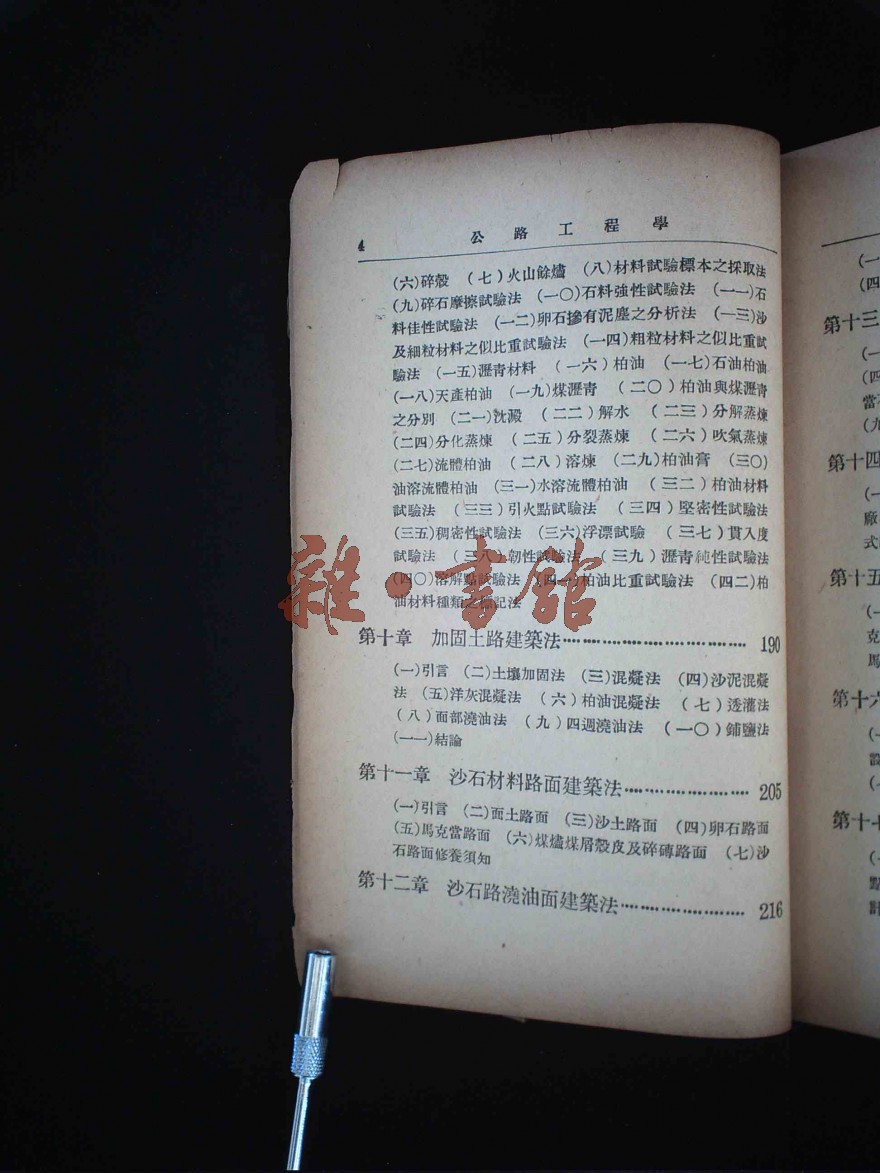 4 公路工程學
(六)碎殼 (七)火山餘燼 (八)材料試驗標本之採取法
(九)碎石摩擦試驗法 (一〇)石料強性試驗法 (一一)石
料佳性試驗法 (一二)卵石摻有泥塵之分析法 (一三)沙
及細粒材料之似比重試驗法 (一四)粗粒材料之似比重試
驗法 (一五)瀝青材料 (一六)柏油 (一七)石油柏油
(一八)天產柏油 (一九)煤瀝青 (二〇)柏油與煤瀝青
之分別 (二一)沈澱 (二二)解水 (二三)分解蒸煉
(二四)分化蒸煉 (二五)分裂蒸煉 (二六)吹氣蒸煉
(二七)流體柏油 (二八)溶煉 (二九)柏油膏 (三〇)
油溶流體柏油 (三一)水溶流體柏油 (三二)柏油材料
試驗法 (三三)引火點試驗法 (三四)堅密性試驗法
(三五)稠密性試驗法 (三六)浮漂試驗 (三七)貫入度
試驗法 (三八)韌性試驗法 (三九)瀝青純性試驗法
(四〇)溶解點試驗法 (四一)柏油比重試驗法 (四二)柏
油材料種類之標記法
雜·書館
第十章 加固土路建築法 190
(一)引言 (二)土壤加固法 (三)混凝法 (四)沙泥混凝
法 (五)洋灰混凝法 (六)柏油混凝法 (七)透灌法
(八)面部澆油法 (九)四週澆油法 (一〇)鋪鹽法
(一一)結論
第十一章 沙石材料路面建築法 205
(一)引言 (二)面土路面 (三)沙土路面 (四)卵石路面
(五)馬克當路面 (六)煤燼煤屑殼皮及碎磚路面 (七)沙
石路面修養須知
第十二章 沙石路澆油面建築法 216
(一
(四
第十三
(一
(四
當
(九
第十四
(一
廠
式
第十五
(一
克
馬
第十六
(一
設
(
第十七
(一
點